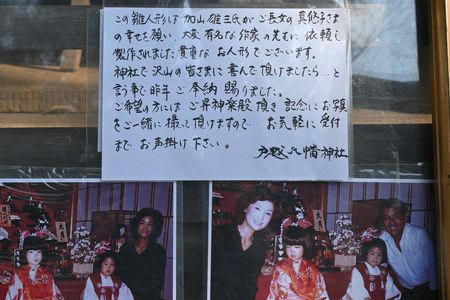 この雛人形は 加山雄三氏が ご長女の 真悠子さま
の幸せを願い、大変 有名な 作家の先生に 依頼し
製作されました 貴重な お人形でございます。
神社で 沢山の 皆さまに 喜んで 頂けましたら…と
言う事で 昨年 ご奉納 賜りました。
ご希望の方には ご昇神楽殿 頂き 記念に お写真
をご一緒に 撮って 頂けますので お気軽に 受付
まで お声掛け 下さい。
八幡神社